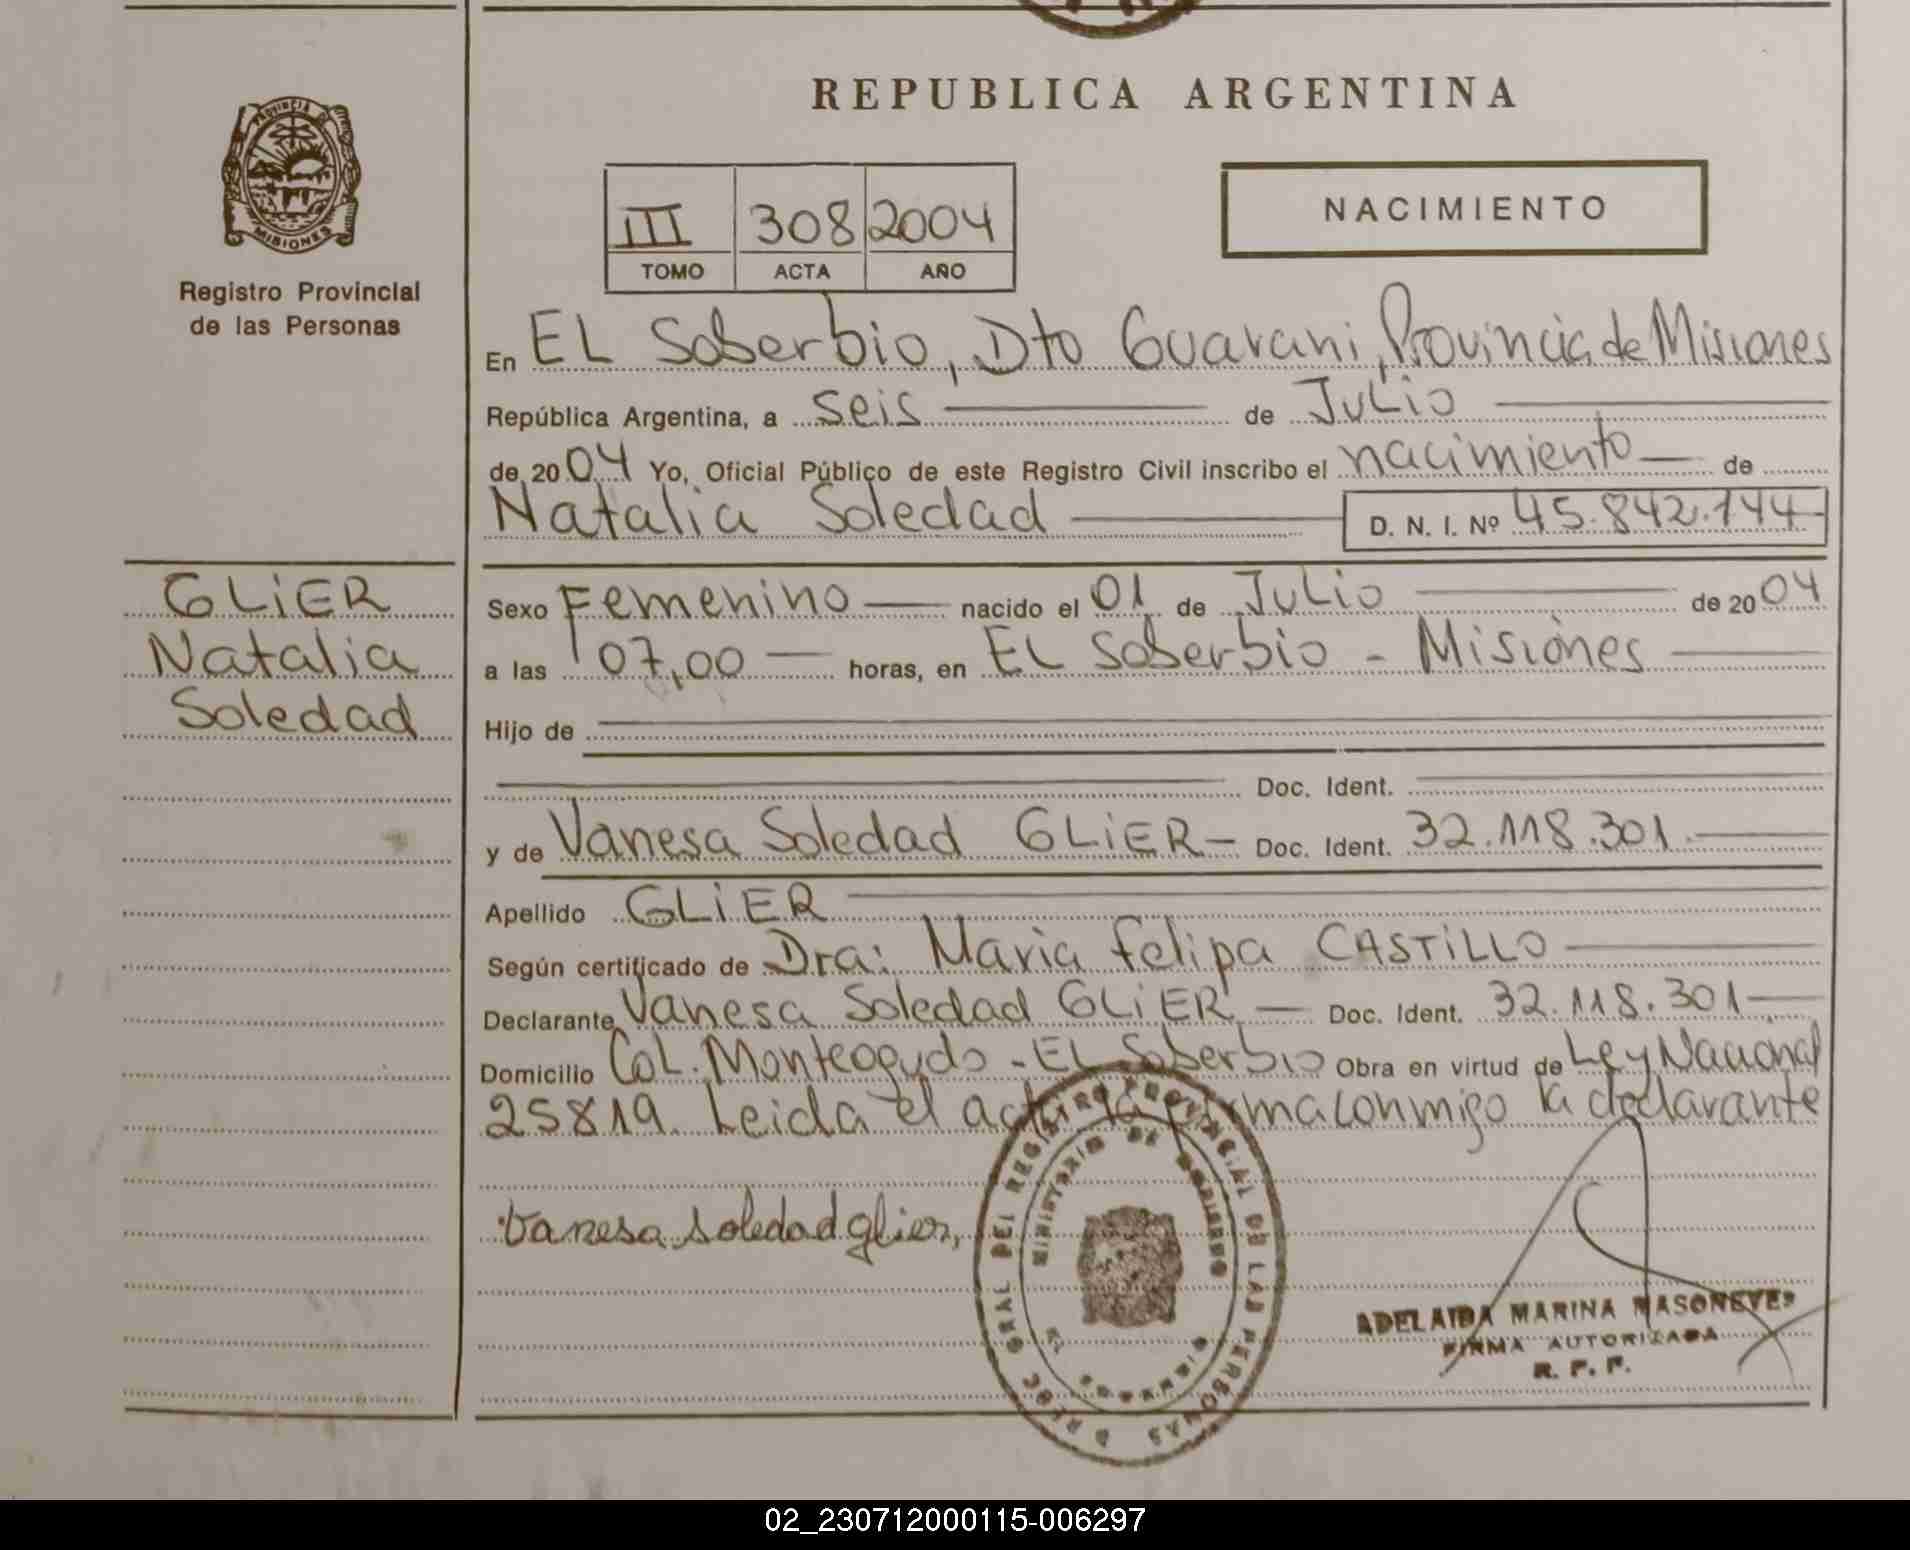 REPUBLICA ARGENTINA
PROVINCIA DE
MISIONES
Registro Provincial
de las Personas
III 308 2004
TOMO ACTA AÑO
NACIMIENTO
En EL Soberbio, Dto Guarani, Provincia de Misiones
República Argentina, a seis de Julio
de 2004 Yo, Oficial Público de este Registro Civil inscribo el nacimiento de
Natalia Soledad D. N. I. Nº 45.842.144
GLiER
Natalia
Soledad
Sexo Femenino nacido el 01 de Julio de 2004
a las 07,00 horas, en EL Soberbio - Misiones
Hijo de
Doc. Ident.
y de Vanesa Soledad GLiER Doc. Ident. 32.118.301
Apellido GLiER
Según certificado de Dra: Maria Felipa CASTiLLO
Declarante Vanesa Soledad GLiER Doc. Ident. 32.118.301
Domicilio CoL. Monteagudo - EL Soberbio Obra en virtud de Ley Nacional
25819. Leida el acta la firma conmigo la declarante
Vanesa soledad glier,
GRAL DEL REGISTRO PROVINCIAL DE LAS PERSONAS
MINISTERIO DE GOBIERNO
MISIONES
ADELAIDA MARINA
FIRMA AUTORIZADA
R. P. P.
02_230712000115-006297